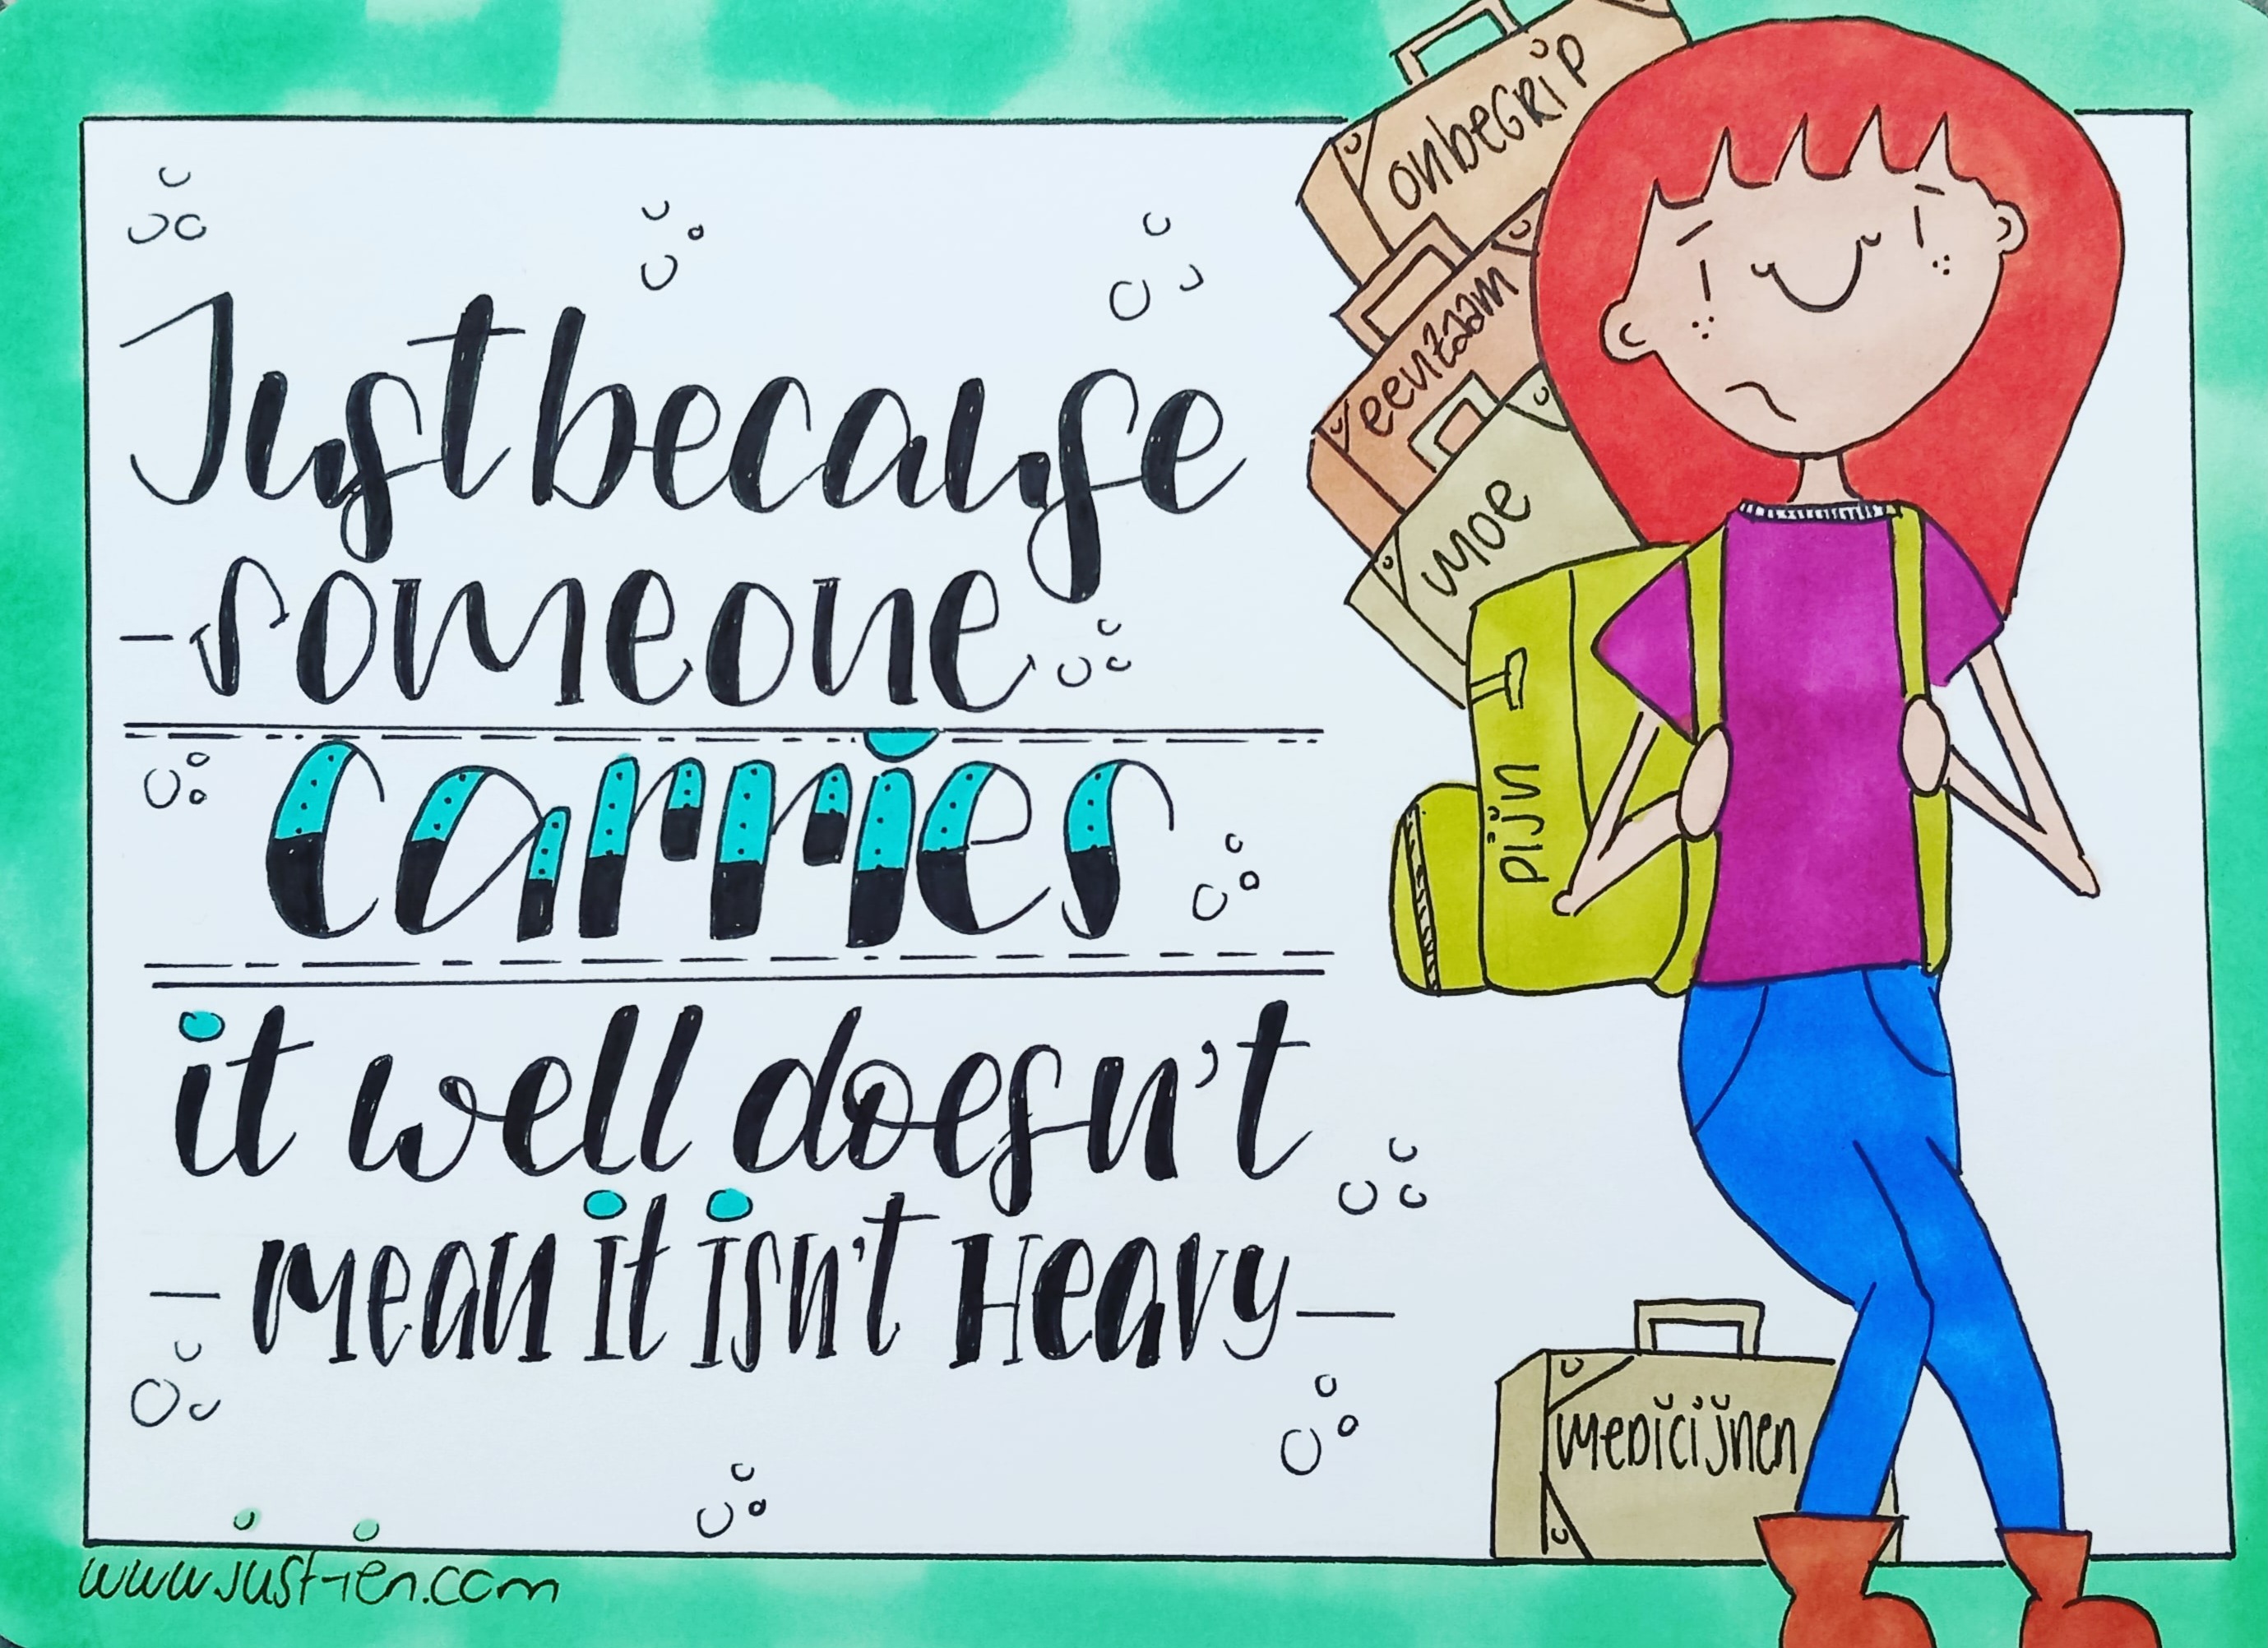 Just because
someone
carries
it well doesn't
mean it isn't Heavy
onbegrip
eenzaam
moe
pijn
medicijnen
www.just-ien.com